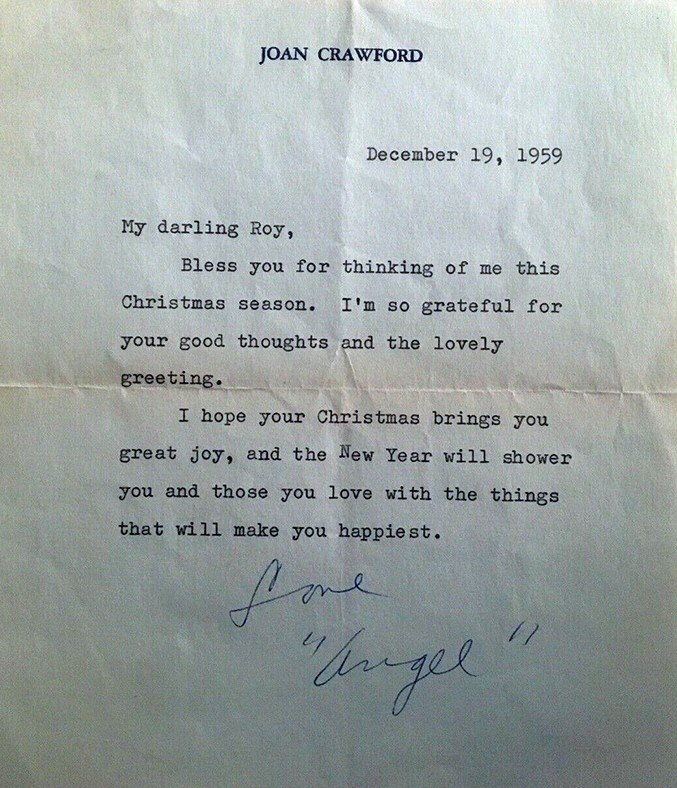 JOAN CRAWFORD
December 19, 1959
My darling Roy,
Bless you for thinking of me this
Christmas season. I'm so grateful for
your good thoughts and the lovely
greeting.
I hope your Christmas brings you
great joy, and the New Year will shower
you and those you love with the things
that will make you happiest.
Love
"Angel"